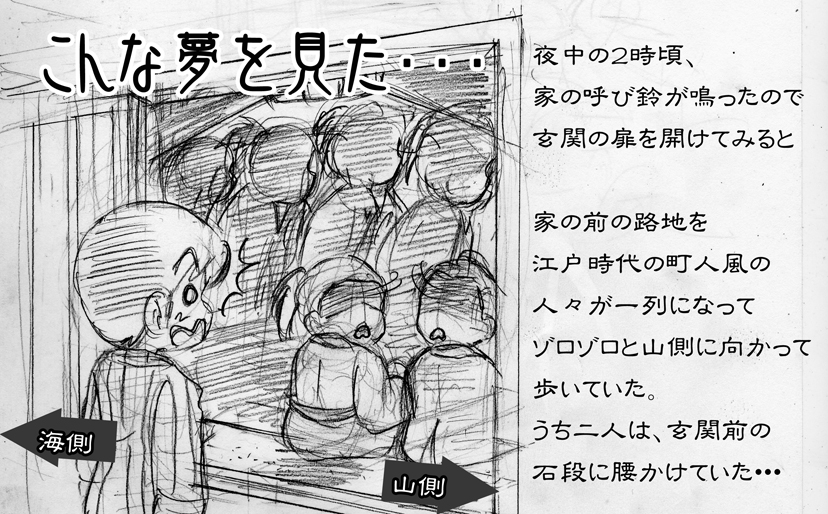 こんな夢を見た・・・
夜中の2時頃、
家の呼び鈴が鳴ったので
玄関の扉を開けてみると
家の前の路地を
江戸時代の町人風の
人々が一列になって
ゾロゾロと山側に向かって
歩いていた。
うち二人は、玄関前の
石段に腰かけていた・・・
海側
山側